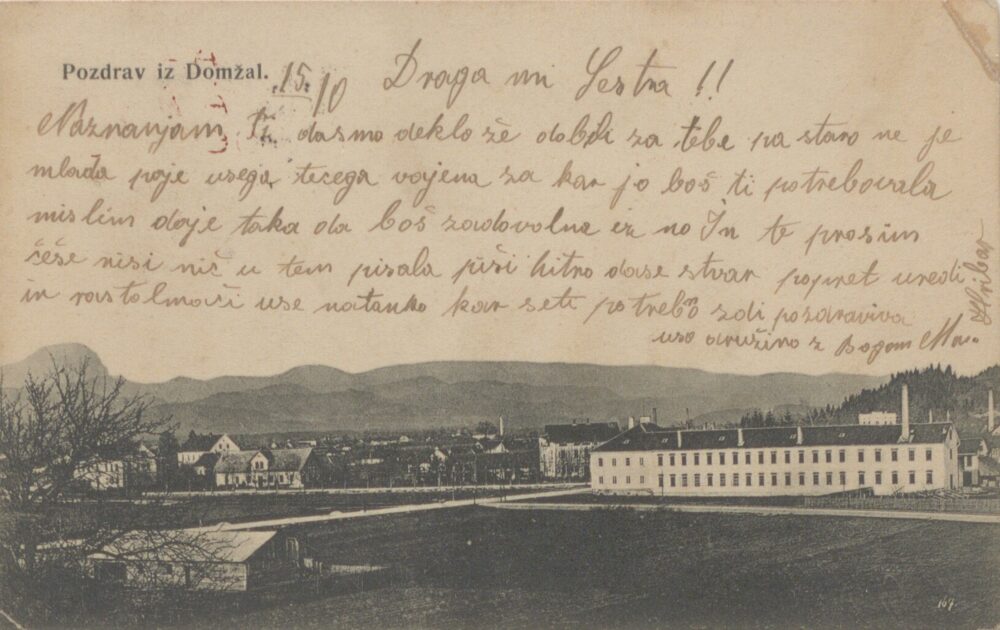 Pozdrav iz Domžal.
15/10 Draga mi Sestra !!
Naznanjam Ti dasmo deklo že dobili za tebe pa staro ne je
mlada paje usega tecega vajena za kar jo boš ti potrebovala
mislim daje taka da boš zadovolna iz no In te prosim
češe nisi nič u tem pisala piši hitro dase stvar popret uredi
in rastolmači use natanko kar seti potrebno zdi pozdraviva
uso družino z Bogom
Hribar
169